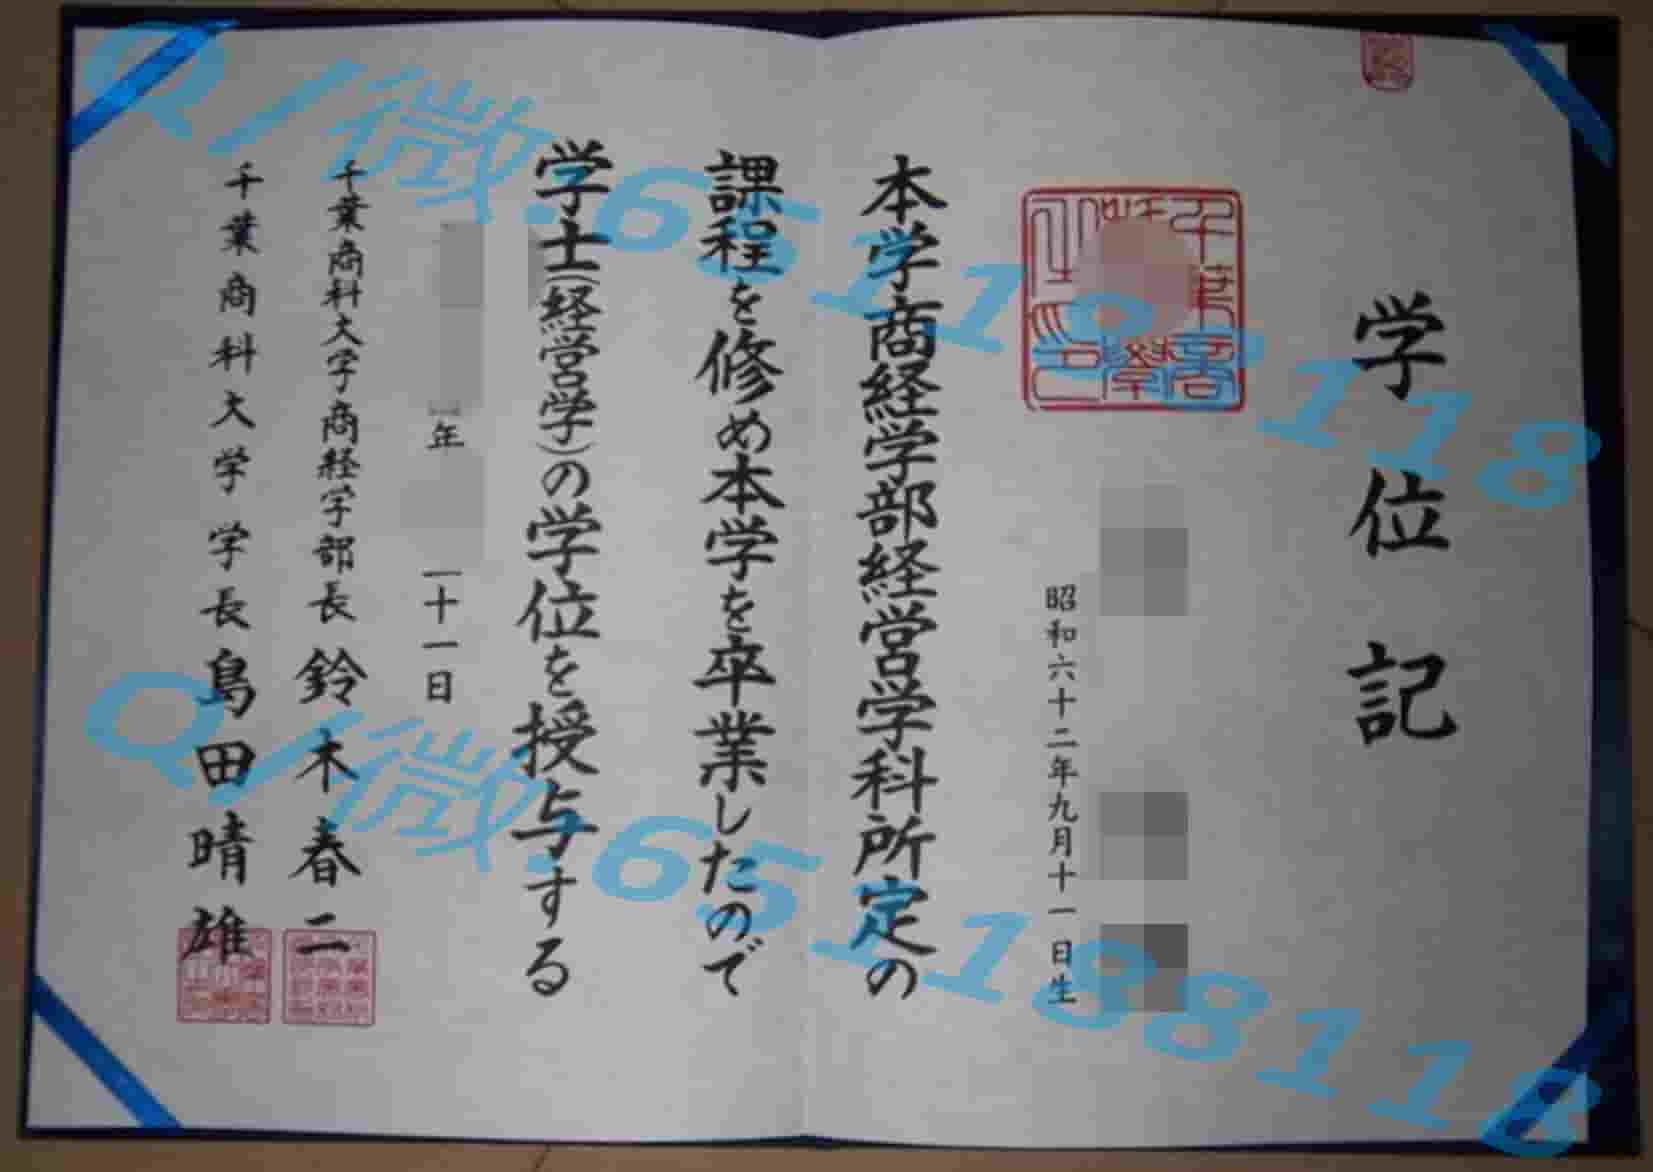 学位記
昭和六十二年九月十一日生
本学商経学部経営学科所定の
課程を修め本学を卒業したので
学士(経営学)の学位を授与する
年
十一日
千葉商科大学商経学部長 鈴木春二
千葉商科大学学長 島田晴雄
Q/微.651188118
Q/微.651188118